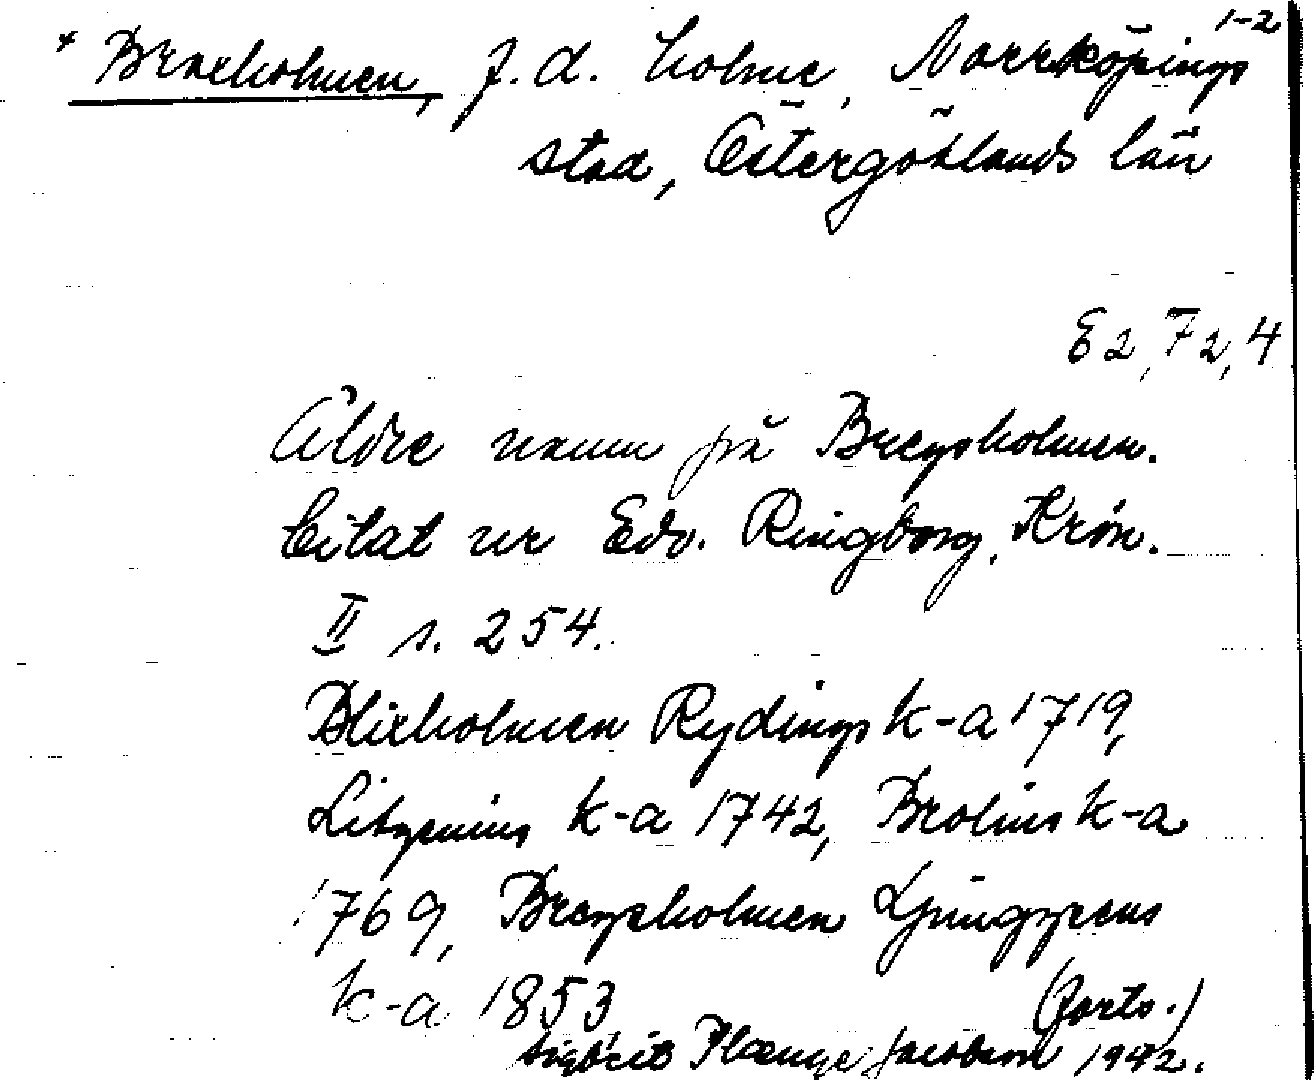 * Braxholmen, f.d. holme, Norrköpings 1-2
stad, Östergötlands län
E2,72,4
Äldre namn på Breysholmen.
Citat ur Edv. Ringborg, Krön.
II s. 254.
Blixholmen Rydings k-a 1719,
Litzenius k-a 1742, Brolins k-a
1769, Breyxholmen Ljunggrens
k-a 1853 (forts.)
Sigbrit Plænge Jacobson 1942.